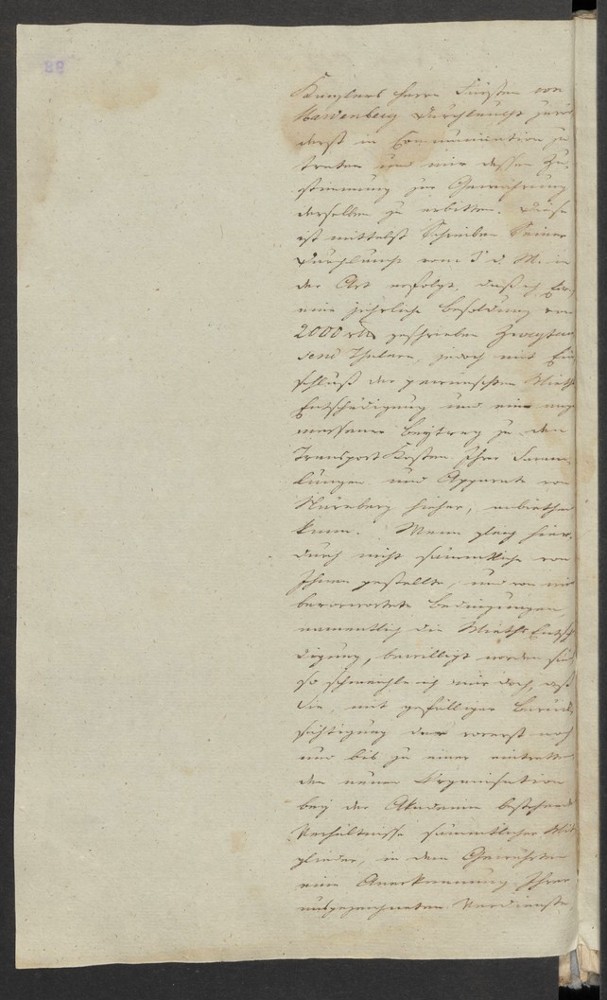 Kanzlers Herrn Fürsten von
Hardenberg Durchlaucht zuvör
derst in Communication zu
treten und mir dessen Zu-
stimmung zur Gewährung
derselben zu erbitten. Diese
ist mittelst Schreiben Seiner
Durchlaucht vom 3 d. M. in
der Art erfolgt, daß ich Ew.
eine jährliche Besoldung von
2000 rtl geschrieben Zweytau
send Thalern, jedoch mit Ein
schluß der Miets
Entschädigung und eine ange
messene Beytrag zu den
Transport Kosten Ihrer Samm
lungen und Apparate von
Nürnberg hieher, anbiethen
kann. Wenn gleich hier-
durch nicht sämmtliche von
Ihnen gestellte, und von mir
bevorwortete Bedingungen
namentlich die Mieths Entschä
digung, bewilligt worden sind
so schmeichle ich mir doch, daß
Sie, mit gefälliger Berück
sichtigung der vorerst noch
und bis zu einer eintretten
den neuen Organisation
bey der Akademie bestehend
Verhältnisse sämmtlicher Mit
glieder, in dem Gewährten
eine Anerkennung Ihrer
ausgezeichneten Verdienste,